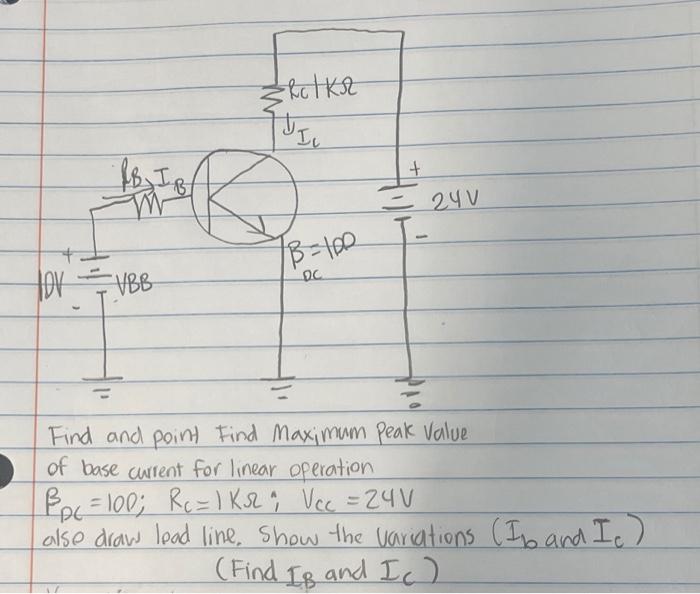 Rc 1KΩ
↓Ic
RB IB
+
24V
-
β=100
DC
+
10V
VBB
-
Find and point Find Maximum Peak Value
of base current for linear operation
βDC = 100; Rc = 1KΩ; Vcc = 24V
also draw load line. Show the variations (Ib and Ic)
(Find IB and Ic)